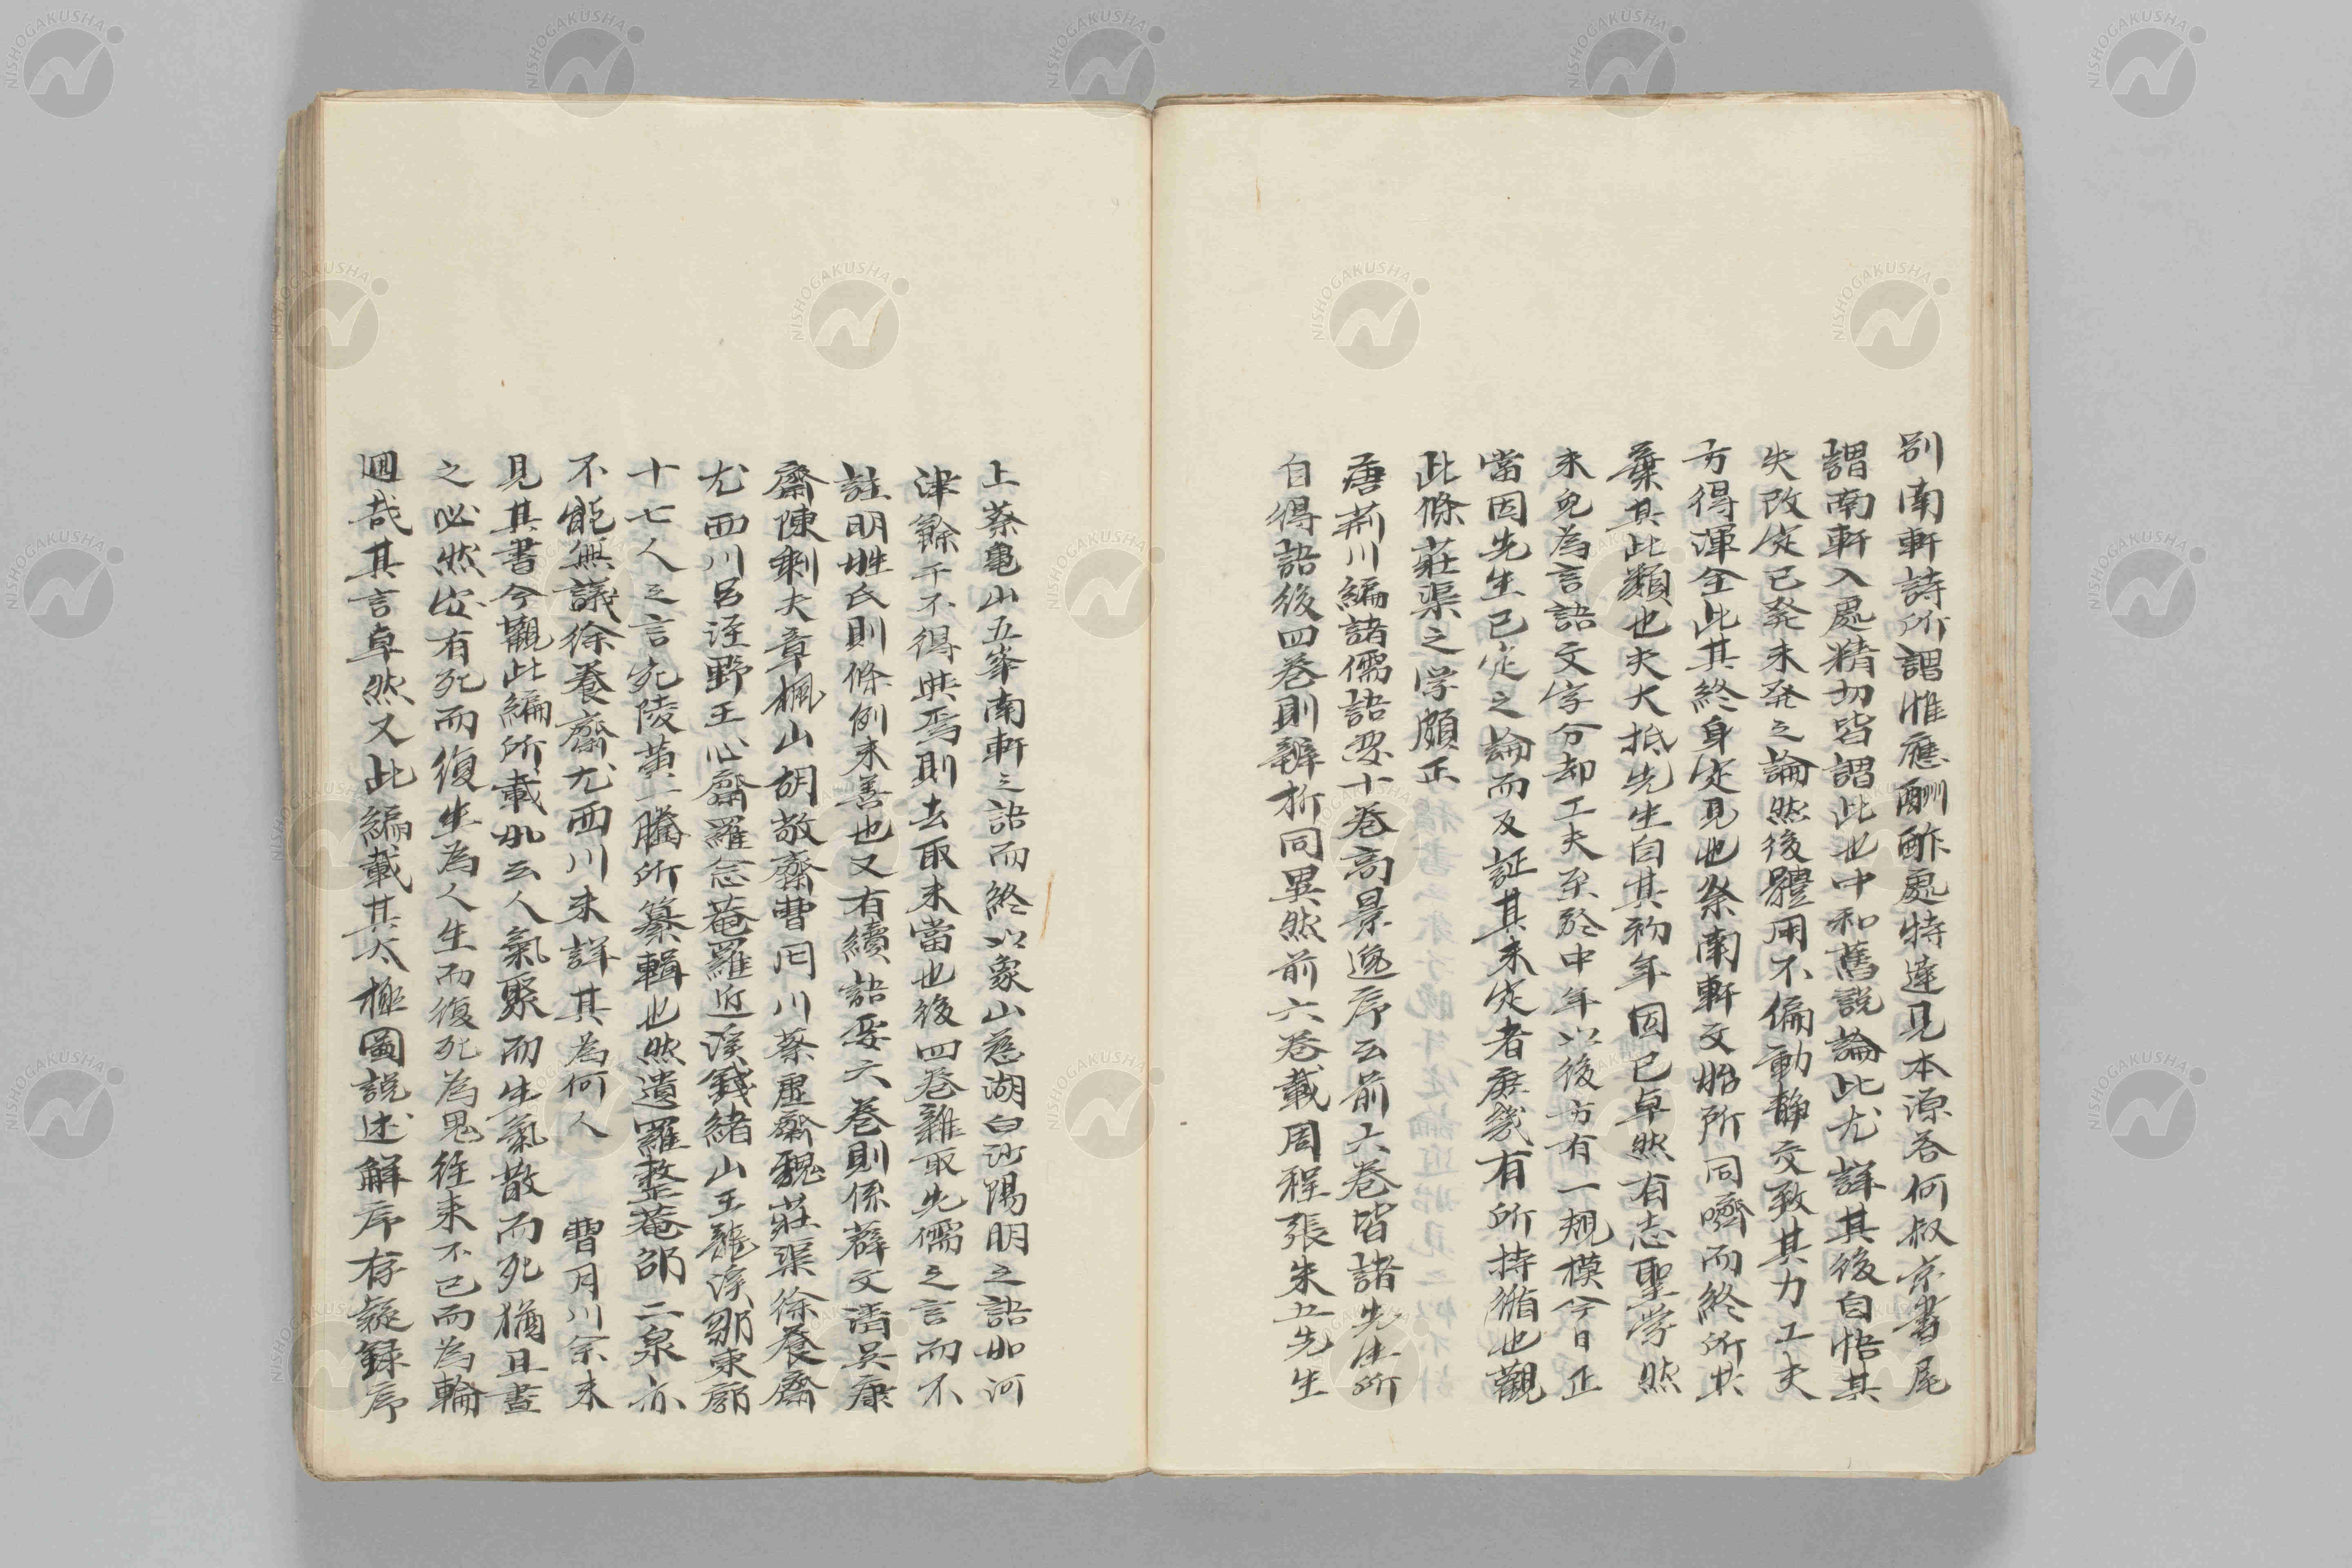 別南軒詩所謂惟應酬酢處特達見本源答何叔京書尾
謂南軒入處精切皆謂此也中和舊説論此尤詳其後自悟其
失改定已発未発之論然後體用不偏動靜交致其力工夫
方得渾全此其終身定見也祭南軒文始所同嚌而終所共
棄其此類也夫大抵先生自其初年固已卓然有志聖学然
未免為言語文字分却工夫至於中年以後方有一規模今日正
當因先生已定之論而反証其未定者庶幾有所持循也觀
此條莊渠之学頗正
唐荊川編諸儒語要十巻高景逸序云前六巻皆諸先生所
自得語後四巻則辨析同異然前六巻載周程張朱五先生
上蔡亀山五峯南軒之語而終以象山慈湖白沙陽明之語如河
津餘干不得與焉則去取未當也後四巻雜取先儒之言而不
註明姓氏則條例未善也又有續語要六巻則係薛文清吳康
齋陳剩夫章楓山胡敬齋曹月川蔡虛齋魏莊渠徐養齋
尤西川呂涇野王心齋羅念菴羅近溪錢緒山王龍溪鄒東廓
十七人之言宛陵黄一騰所纂輯也然遺羅整菴邵二泉亦
不能無議徐養齋尤西川未詳其為何人 曹月川余未
見其書今觀此編所載如云人氣聚而生氣散而死猶旦晝
之必然安有死而復生為人生而復死為鬼往来不已而為輪
迴哉其言卓然又此編載其太極圖説述解序存疑録序